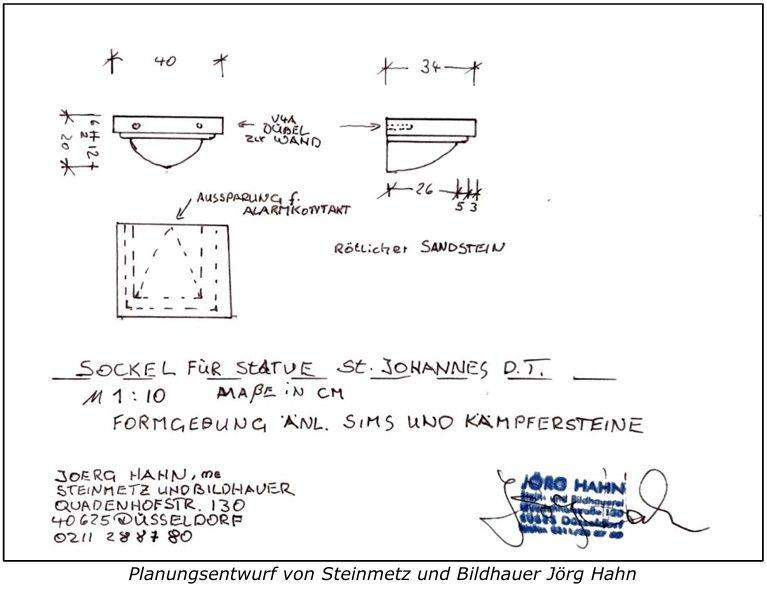 40
34
V4A
DÜBEL
zur WAND
6
2
12
20
26
5 3
AUSSPARUNG f.
ALARMKONTAKT
Rötlicher SANDSTEIN
SOCKEL FÜR STATUE St. JOHANNES D.T.
M 1:10 MAßE iN CM
FORMGEBUNG ÄNL. SIMS UND KÄMPFERSTEINE
JOERG HAHN, me
STEINMETZ UND BILDHAUER
QUADENHOFSTR. 130
40625 DÜSSELDORF
0211 288780
JÖRG HAHN
Stein- und Bildhauerei
Quadenhofstraße 130
40625 Düsseldorf
Planungsentwurf von Steinmetz und Bildhauer Jörg Hahn